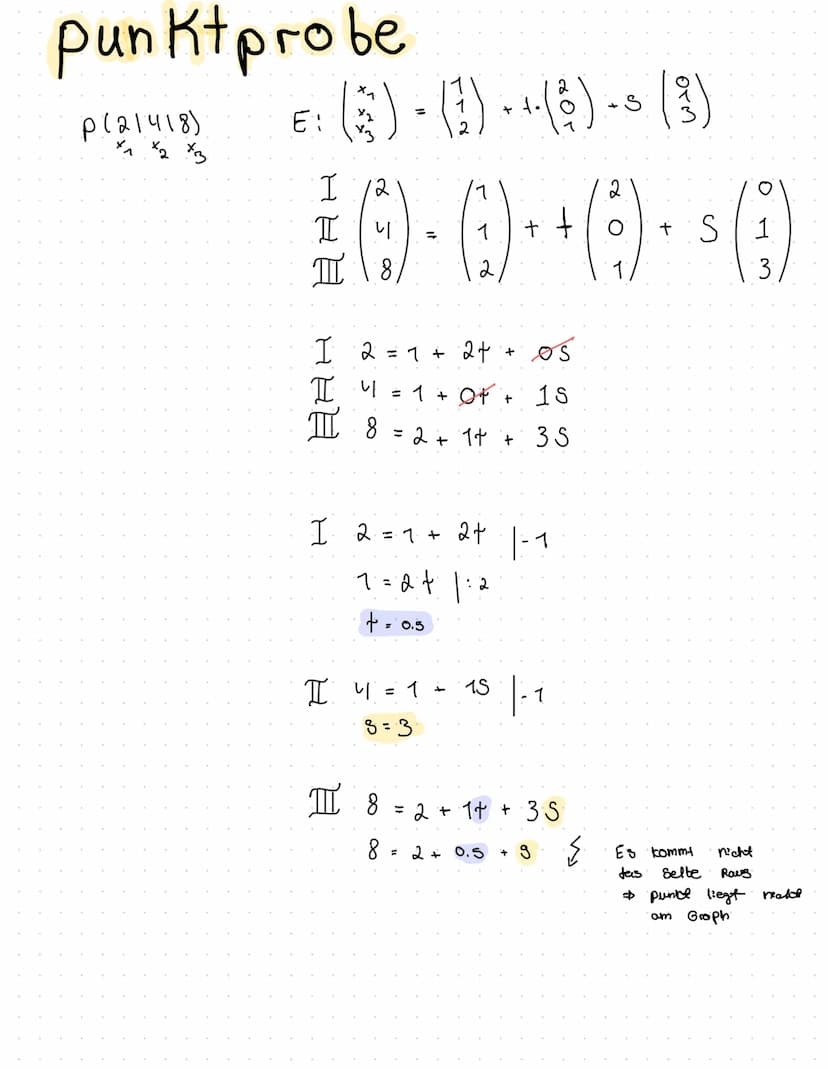 punktprobe
P(2|4|8)
x1 x2 x3
E: (x1 x2 x3) = (1 1 2) + t · (2 0 1) + s (0 1 3)
I
II
III
(2 4 8) = (1 1 2) + t (2 0 1) + s (0 1 3)
I 2 = 1 + 2t + 0s
II 4 = 1 + 0t + 1s
III 8 = 2 + 1t + 3s
I 2 = 1 + 2t |-1
1 = 2t |:2
t = 0.5
II 4 = 1 + 1s |-1
s = 3
III 8 = 2 + 1t + 3s
8 = 2 + 0.5 + 9 ↯
Es kommt nicht
das Selbe Raus
⇒ punkt liegt nicht
am Graph